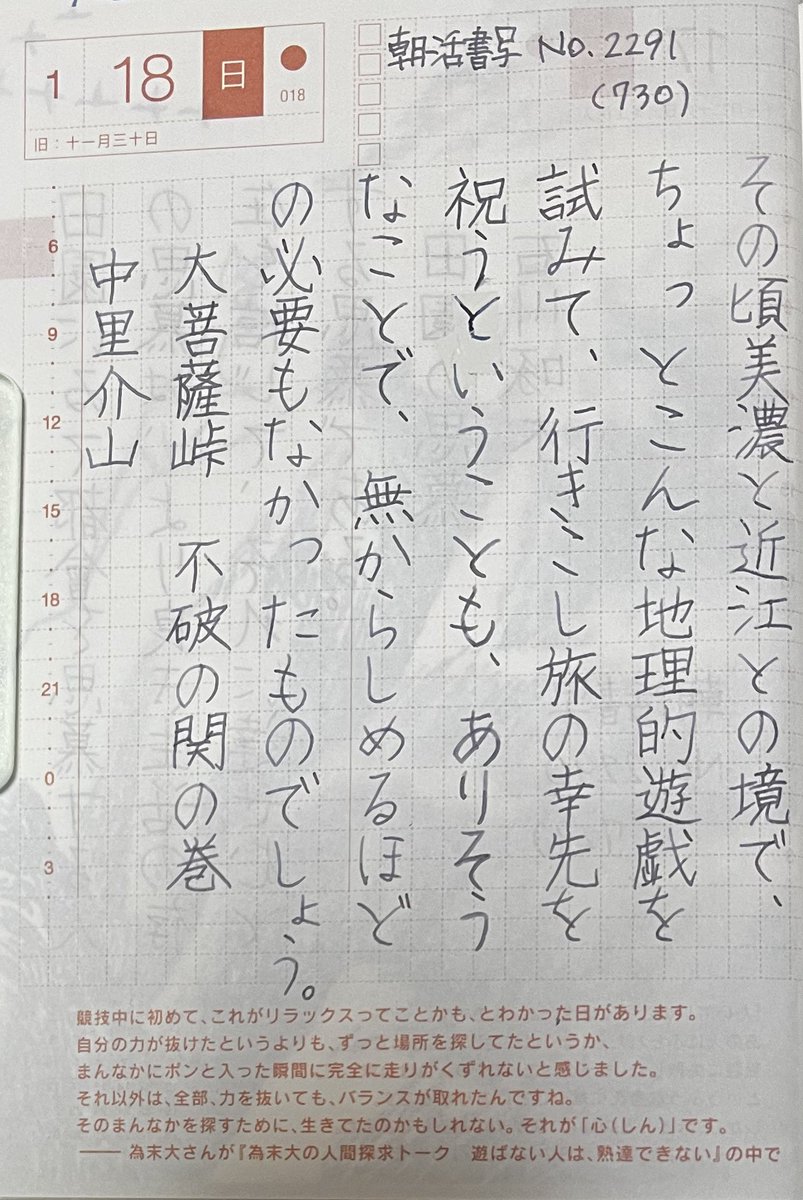 1 18 日 ●
018
旧：十一月三十日
朝活書写 No.2291
(730)
その頃美濃と近江との境で、
ちょっとこんな地理的遊戯を
試みて、行きこし旅の幸先を
祝うということも、ありそう
なことで、無からしめるほど
の必要もなかったものでしょう。
大菩薩峠 不破の関の巻
中里介山
6
9
12
15
18
21
0
3
競技中に初めて、これがリラックスってことかも、とわかった日があります。
自分の力が抜けたというよりも、ずっと場所を探してたというか、
まんなかにポンと入った瞬間に完全に走りがくずれないと感じました。
それ以外は、全部、力を抜いても、バランスが取れたんですね。
そのまんなかを探すために、生きてたのかもしれない。それが「心（しん）」です。
—— 為末大さんが『為末大の人間探求トーク 遊ばない人は、熟達できない』の中で